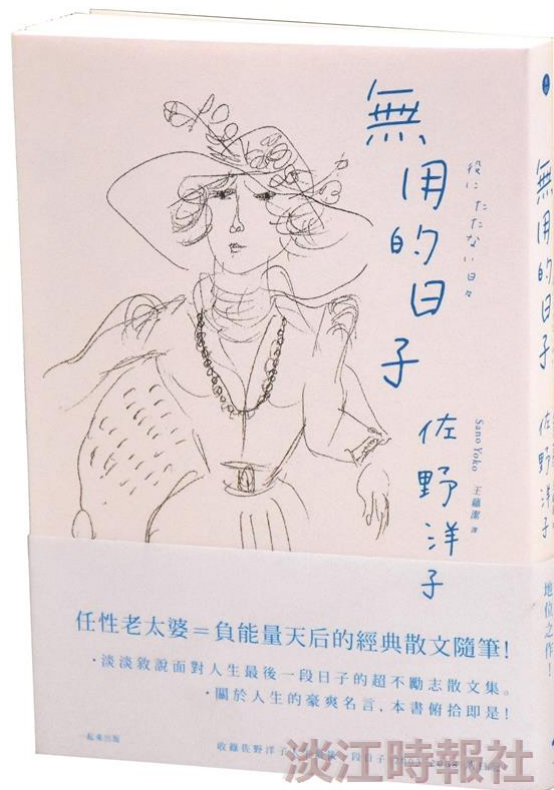 無用的日子
役にたたない日々
佐野洋子
Sano Yoko 王蘊潔 譯
無用的日子
佐野洋子
地位之作!
任性老太婆=負能量天后的經典散文隨筆!
•淡淡敘說面對人生最後一段日子的超不勵志散文集。
•關於人生的豪爽名言,本書俯拾即是!
一起來出版
收錄佐野洋子
淡江時報社